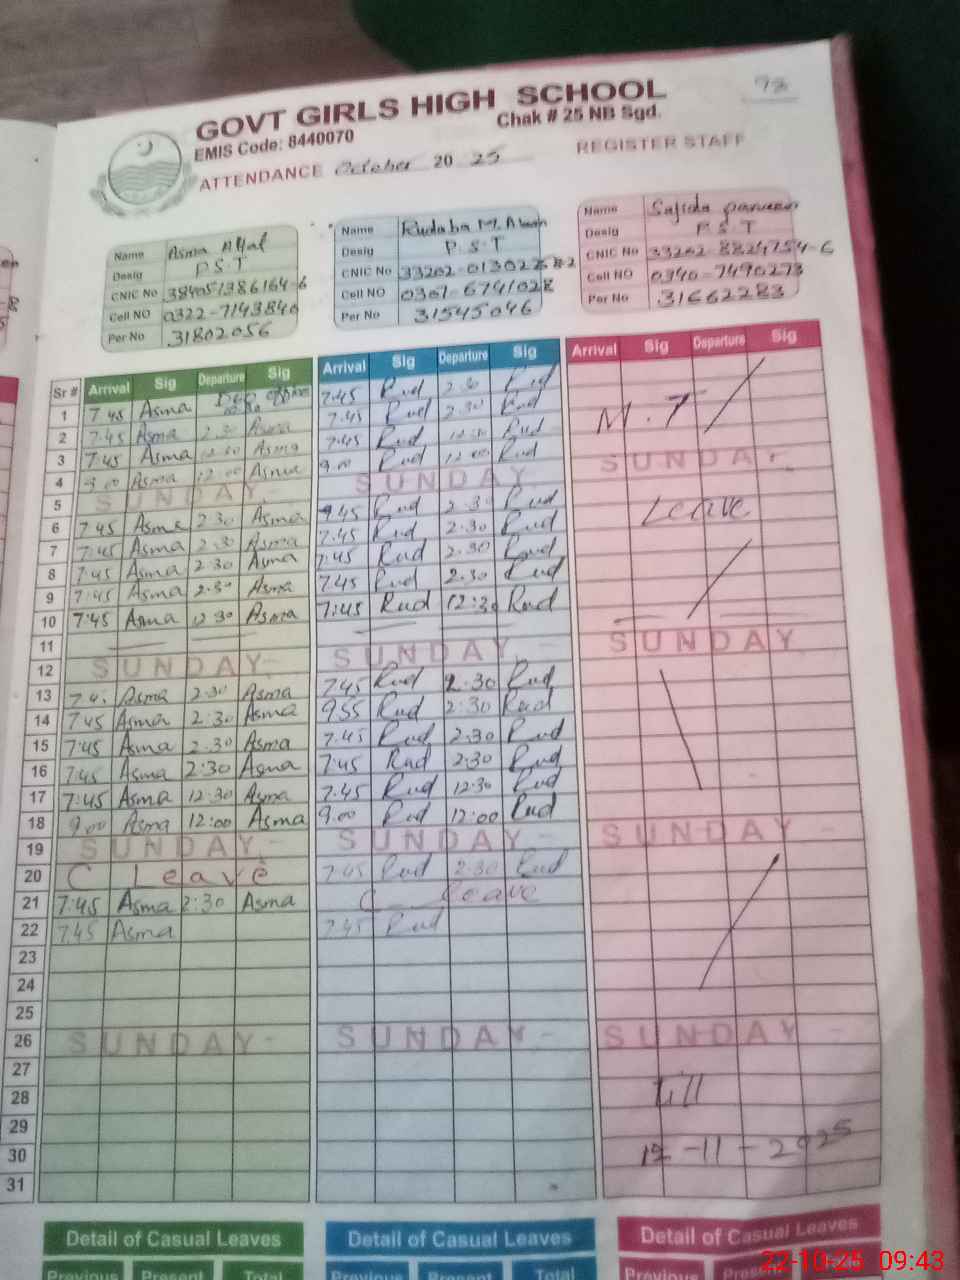 93
GOVT GIRLS HIGH SCHOOL
Chak # 25 NB Sgd.
EMIS Code: 8440070
ATTENDANCE October 20 25 REGISTER STAFF
Name
Desig P.S.T
CNIC No 384051386164-6
Cell NO 0322-7143840
Per No 31802056
Name Rudaba M.
Desig P.S.T
CNIC No
Cell NO 0301-6741028
Per No 31545046
Name Sajida parveen
Desig P.S.T
CNIC No 33202-8824754-6
Cell NO 0340-7490273
Per No 31662283
Sr # Arrival Sig Departure Sig Arrival Sig Departure Sig Arrival Sig Departure Sig
1 7 45 Asma 7.45 Rud 2.30 Rud
2 7.45 Asma 2.30 Asma 7.45 Rud 2.30 Rud M.T
3 7:45 Asma 12.30 Asma 7.45 Rud 12.30 Rud
4 9.00 Asma 12.00 Asma 9.00 Rud 12.00 Rud
5 SUNDAY SUNDAY SUNDAY
6 7.45 Asma 2.30 Asma 7.45 Rud 2.30 Rud
7 7:45 Asma 2.30 Asma 7.45 Rud 2.30 Rud Leave
8 7.45 Asma 2.30 Asma 7.45 Rud 2.30 Rud
9 7:45 Asma 2.30 Asma 7.45 Rud 2.30 Rud
10 7:45 Asma 12.30 Asma 7:45 Rud 12:30 Rud
11
12 SUNDAY SUNDAY SUNDAY
13 Asma 2.30 Asma 7.45 Rud 2.30 Rud
14 7.45 Asma 2.30 Asma 9.55 Rud 2.30 Rud
15 7:45 Asma 2.30 Asma 7.45 Rud 2.30 Rud
16 7:45 Asma 2:30 Asma 7:45 Rud 2:30 Rud
17 7:45 Asma 12.30 Asma 7.45 Rud 12.30 Rud
18 9.00 Asma 12:00 Asma 9.00 Rud 12:00 Rud
19 SUNDAY SUNDAY SUNDAY
20 C Leave 7.45 Rud 2.30 Rud
21 7:45 Asma 2:30 Asma C leave
22 7.45 Asma 7.45 Rud
23
24
25
26 SUNDAY SUNDAY SUNDAY
27
28 Till
29
30 12-11-2025
31
Detail of Casual Leaves Detail of Casual Leaves Detail of Casual Leaves
Previous Present Total Previous Present Total Previous Present Total
22-10-25 09:43